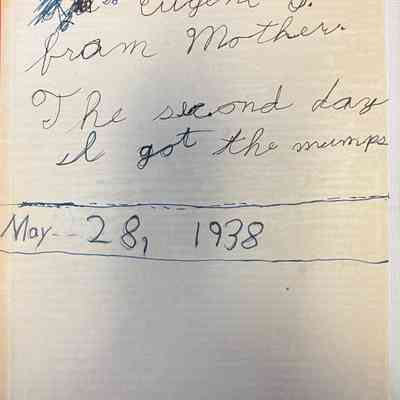 Eugene J.
from Mother.
The second day
I got the mumps
May - 28, 1938